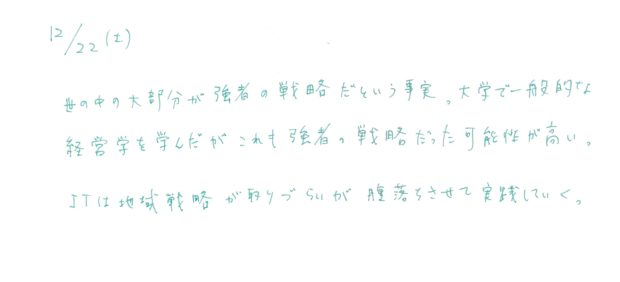 12/22(土)
世の中の大部分が強者の戦略だという事実。大学で一般的な
経営学を学んだがこれも強者の戦略だった可能性が高い。
JTは地域戦略が取りづらいが腹落ちさせて実践していく。